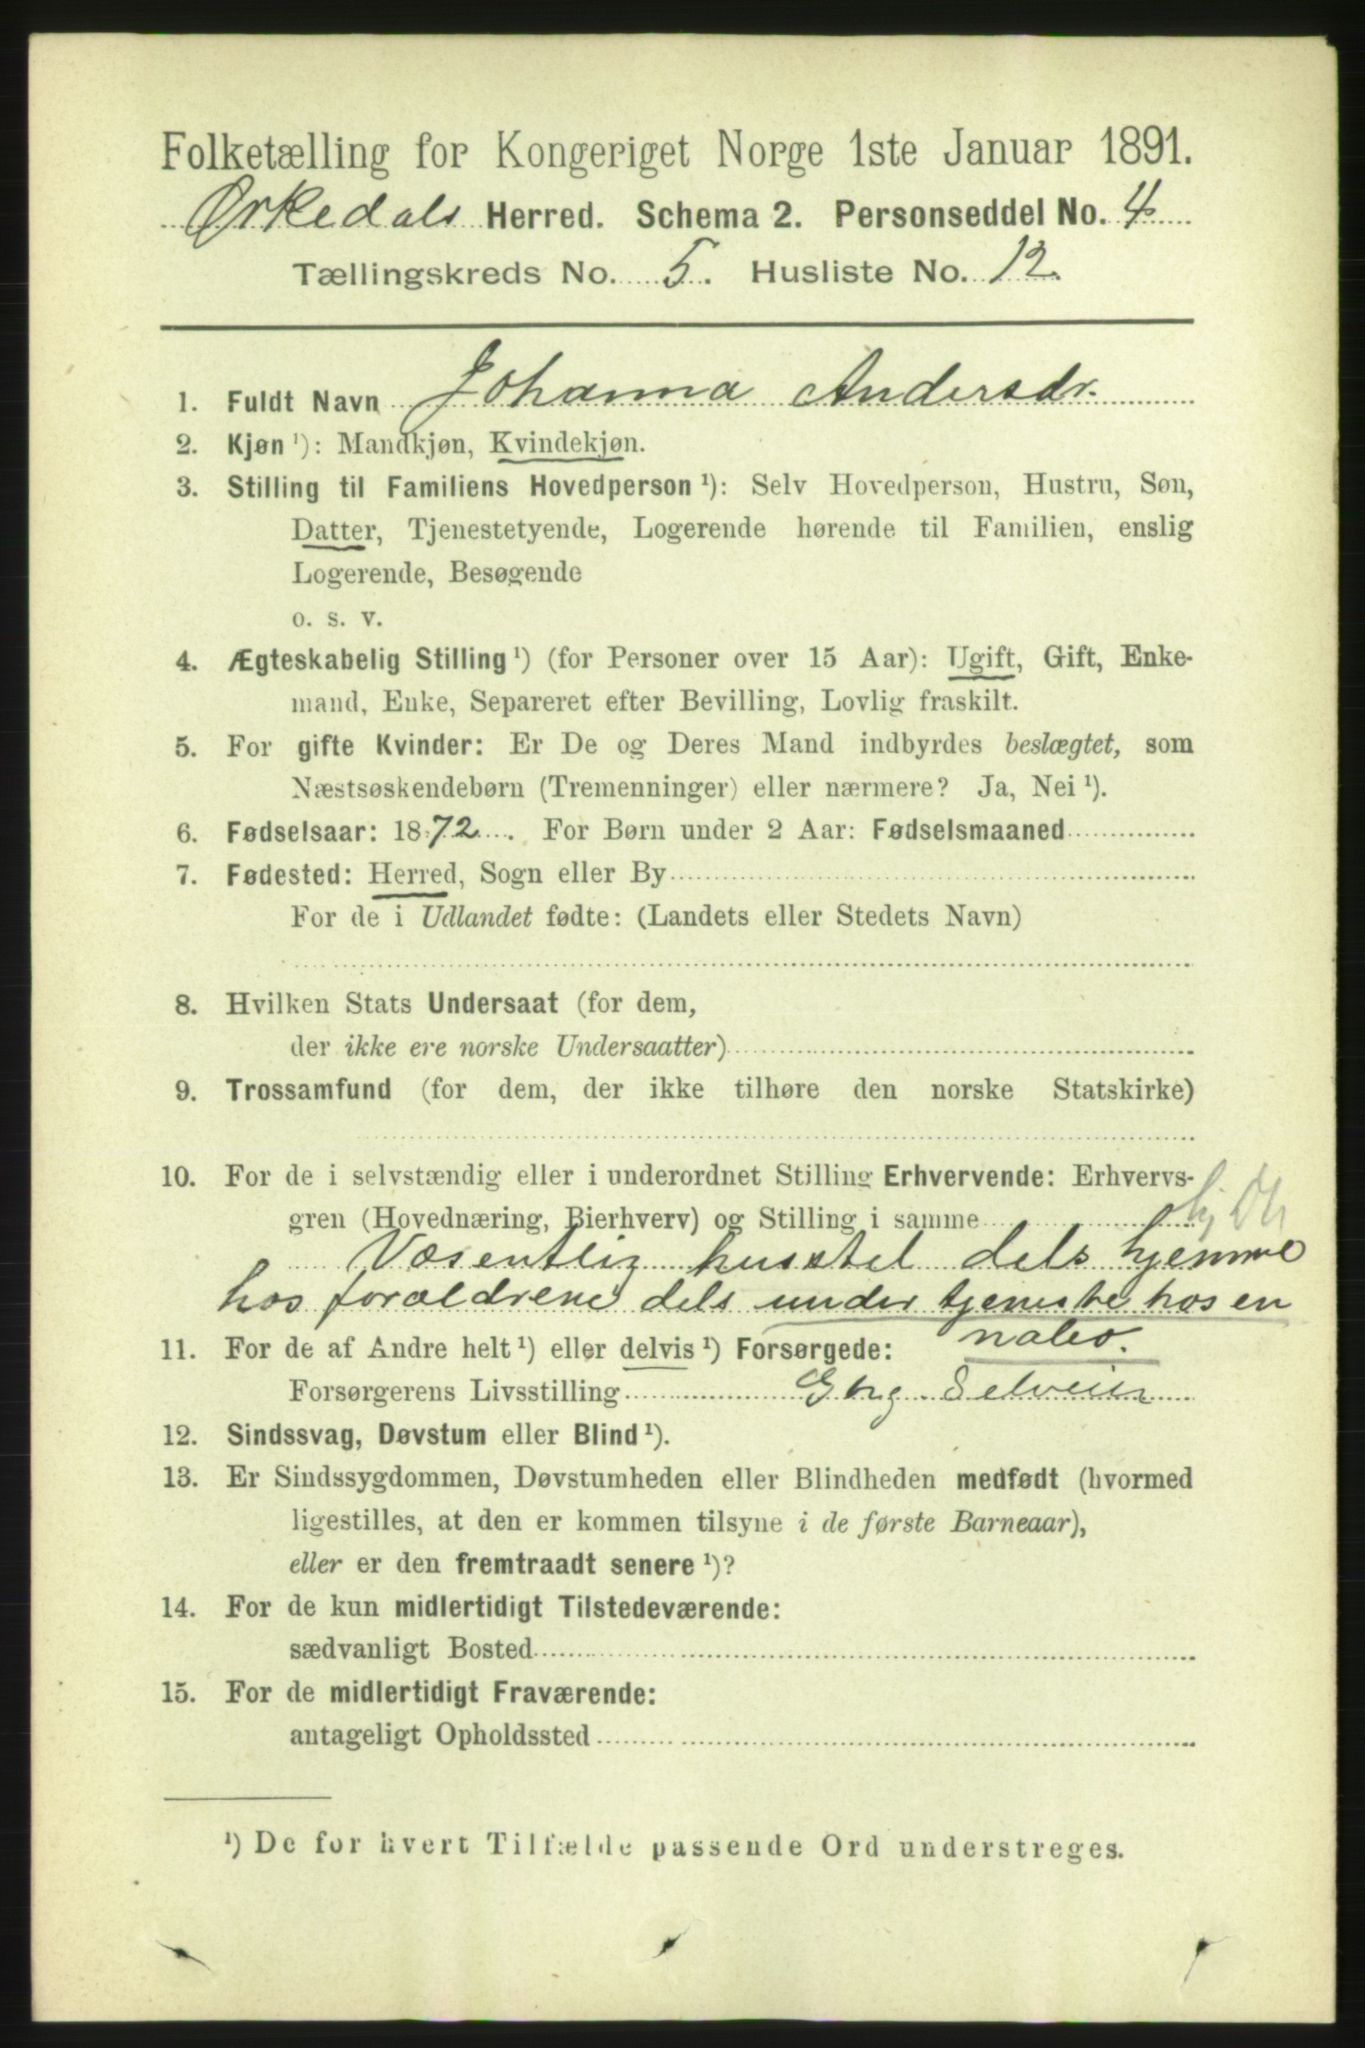 Folketælling for Kongeriget Norge 1ste Januar 1891.
Ørkedals Herred. Schema 2. Personseddel No. 4
Tællingskreds No. 5. Husliste No. 12.
1. Fuldt Navn Johanna Andersdr.
2. Kjøn ¹): Mandkjøn, Kvindekjøn.
3. Stilling til Familiens Hovedperson ¹): Selv Hovedperson, Hustru, Søn,
Datter, Tjenestetyende, Logerende hørende til Familien, enslig
Logerende, Besøgende
o. s. v.
4. Ægteskabelig Stilling ¹) (for Personer over 15 Aar): Ugift, Gift, Enke-
mand, Enke, Separeret efter Bevilling, Lovlig fraskilt.
5. For gifte Kvinder: Er De og Deres Mand indbyrdes beslægtet, som
Næstsøskendebørn (Tremenninger) eller nærmere? Ja, Nei ¹).
6. Fødselsaar: 1872. For Børn under 2 Aar: Fødselsmaaned
7. Fødested: Herred, Sogn eller By
For de i Udlandet fødte: (Landets eller Stedets Navn)
8. Hvilken Stats Undersaat (for dem,
der ikke ere norske Undersaatter)
9. Trossamfund (for dem, der ikke tilhøre den norske Statskirke)
10. For de i selvstændig eller i underordnet Stilling Erhvervende: Erhvervs-
gren (Hovednæring, Bierhverv) og Stilling i samme
Væsentlig husstel dels hjemme
hos forældrene dels under tjeneste hos en
nabo.
11. For de af Andre helt ¹) eller delvis ¹) Forsørgede:
Forsørgerens Livsstilling
12. Sindssvag, Døvstum eller Blind ¹).
13. Er Sindssygdommen, Døvstumheden eller Blindheden medfødt (hvormed
ligestilles, at den er kommen tilsyne i de første Barneaar),
eller er den fremtraadt senere ¹)?
14. For de kun midlertidigt Tilstedeværende:
sædvanligt Bosted
15. For de midlertidigt Fraværende:
antageligt Opholdssted
¹) De for hvert Tilfælde passende Ord understreges.